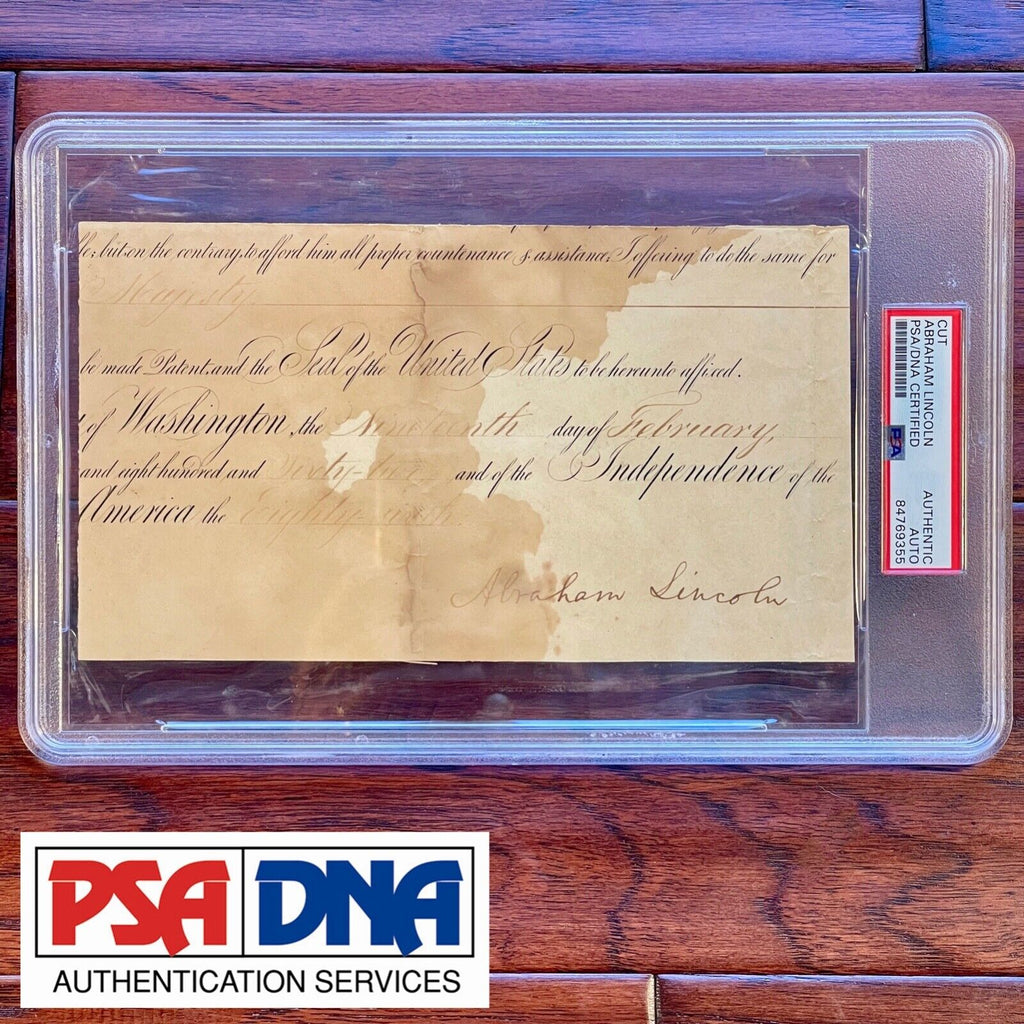 but on the contrary, to afford him all proper countenance & assistance, I offering to do the same for
Majesty.
be made Patent, and the Seal of the United States to be hereunto affixed.
of Washington, the Nineteenth day of February,
and eight hundred and Sixty-five, and of the Independence of the
America the Eighty-ninth.
Abraham Lincoln
CUT
ABRAHAM LINCOLN
PSA/DNA CERTIFIED
PSA
AUTHENTIC
AUTO
84769355
PSA DNA
AUTHENTICATION SERVICES